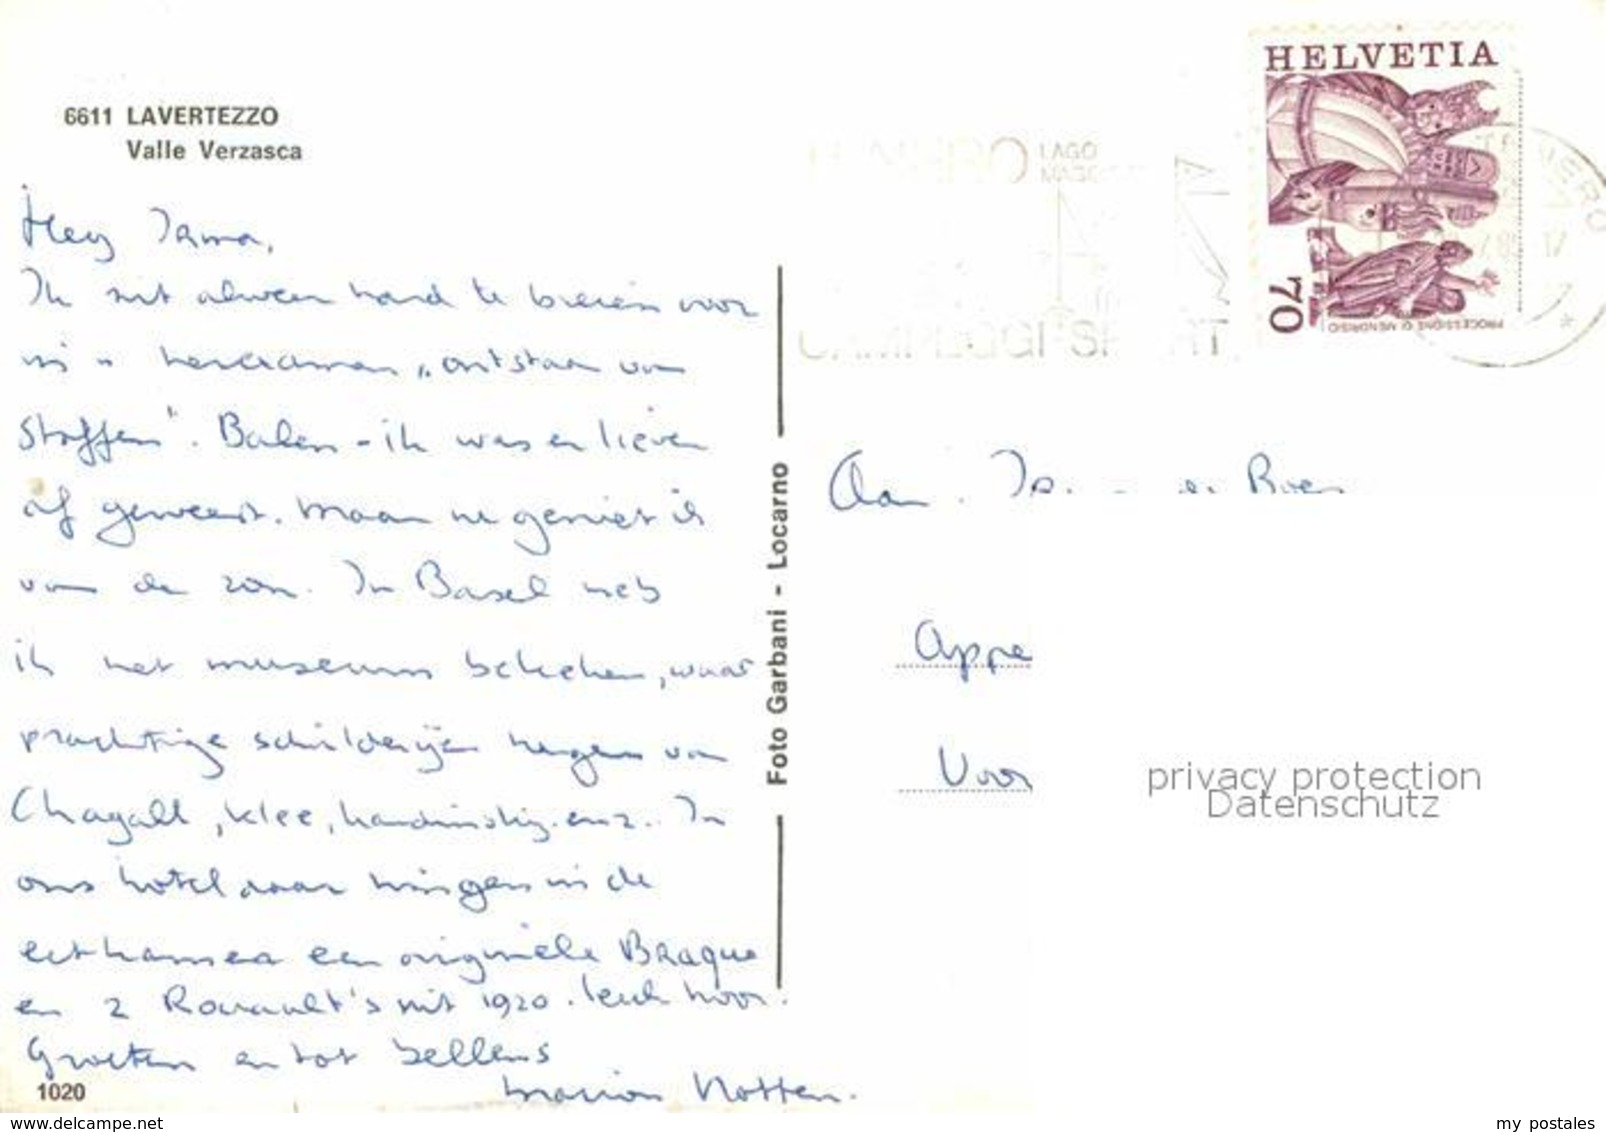 6611 LAVERTEZZO
Valle Verzasca
HELVETIA
70
PROCESSIONE DI MENDRISIO
LAGO
CAMPEGGI-SPORT
Hey
Ik zit alweer hard te breien voor
m'n "ontstaan van
stoffen". Balen - ik was er liever
af geweest. Maar nu geniet ik
van de zon. In Basel heb
ik het museum bekeken, waar
prachtige schilderijen hingen van
Chagall, Klee, Kandinsky enz.. In
ons hotel daar hingen in de
eetkamer een originele Braque
en 2 Rouault's uit 1920. Leuk hoor.
Groeten en tot bellens
Marion
Aan
Appe
Voor
Foto Garbani - Locarno
1020
privacy protection
Datenschutz
www.delcampe.net
my postales